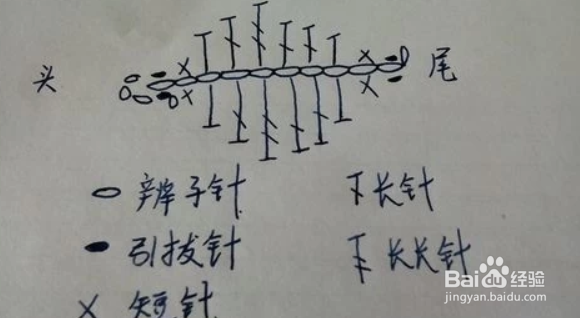 头 尾
辫子针 长针
引拔针 长长针
短针
Baidu经验
jingyan.baidu.com